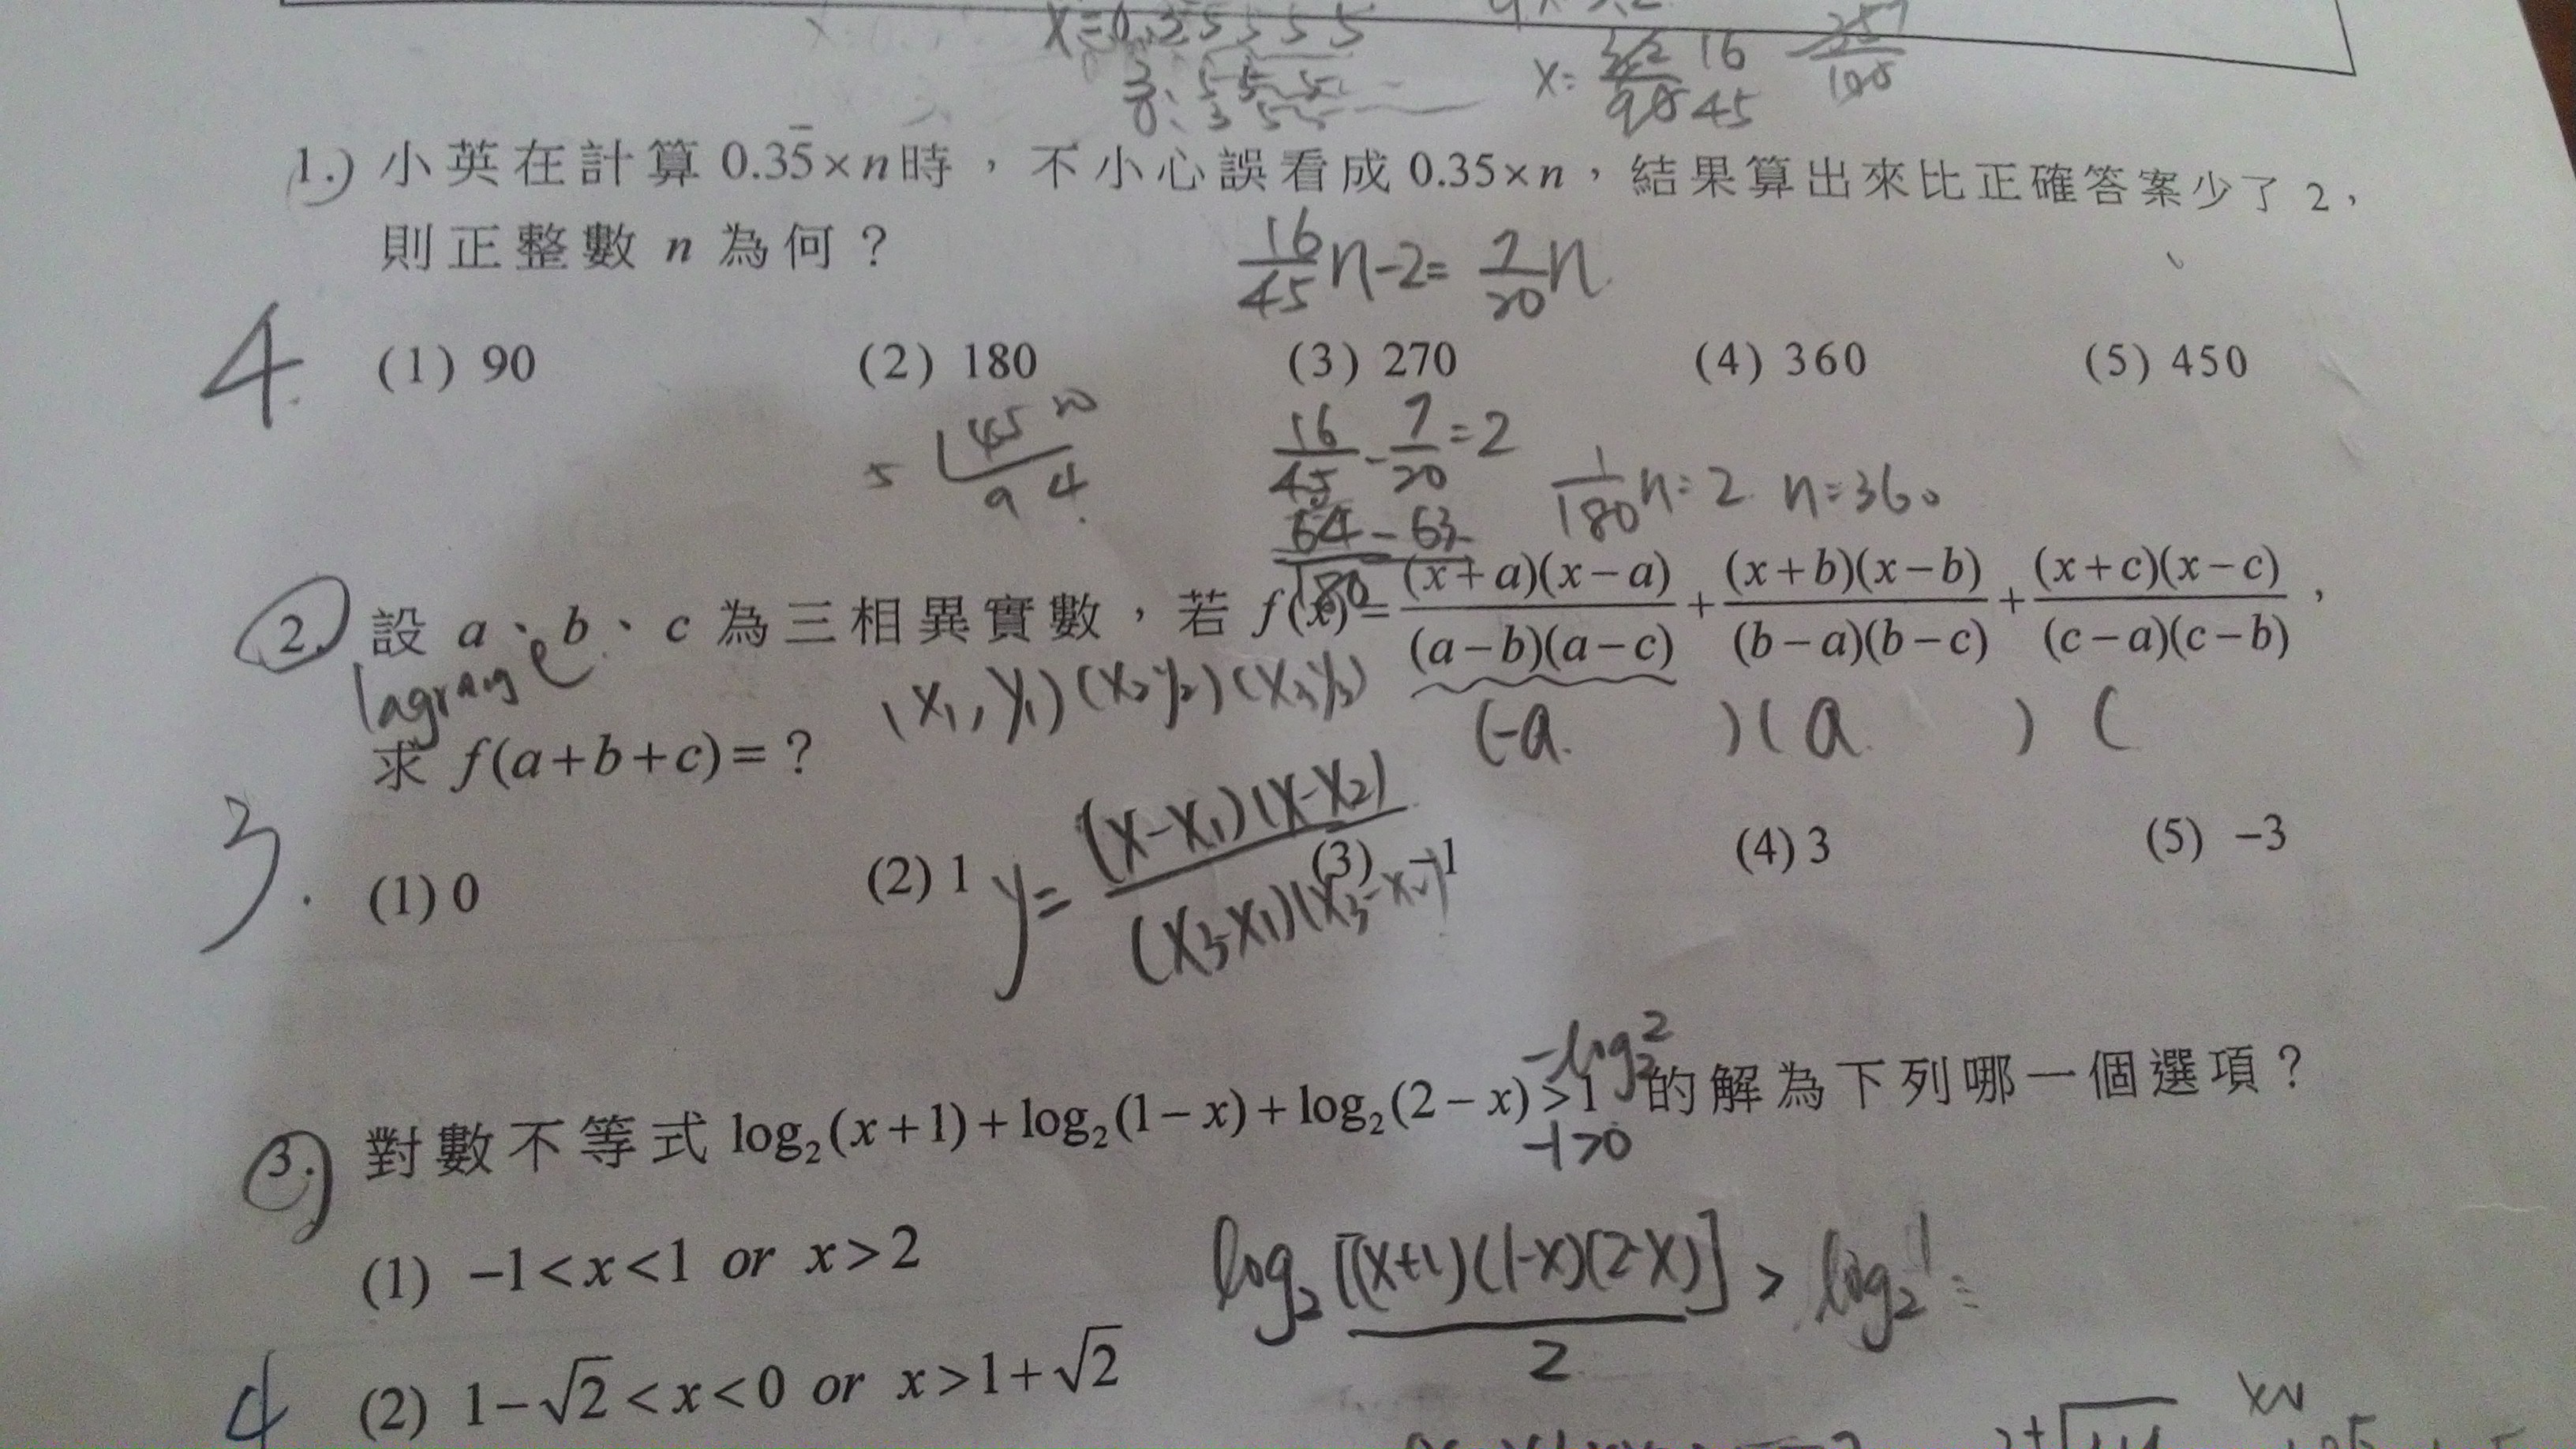 x=0.35555
x= 32/90 16/45
1.) 小英在計算 0.35̅×n時，不小心誤看成 0.35×n，結果算出來比正確答案少了 2，
則正整數 n 為何？
16/45 n-2= 7/20 n
4. (1) 90 (2) 180 (3) 270 (4) 360 (5) 450
5 45 20
9 4
16/45 - 7/20 =2
64-63/180
1/180 n=2 n=360
2. 設 a、b、c 為三相異實數，若 f(x)= (x+a)(x−a)/(a−b)(a−c) + (x+b)(x−b)/(b−a)(b−c) + (x+c)(x−c)/(c−a)(c−b)，
lagrange (x₁, y₁)(x₂y₂)(x₃y₃) (-a )(a )(
求 f(a+b+c)=？
3. (1) 0 (2) 1 (3) −1 (4) 3 (5) −3
y= (x-x₁)(x-x₂)/(x₃-x₁)(x₃-x₂)
-log₂2
3. 對數不等式 log₂(x+1)+log₂(1−x)+log₂(2−x)>1 的解為下列哪一個選項？
-1>0
(1) −1<x<1 or x>2
log₂ [(x+1)(1-x)(2-x)]/2 > log₂1
4 (2) 1−√2<x<0 or x>1+√2